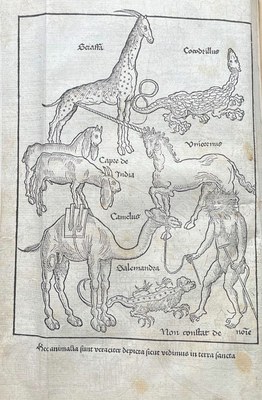 Seraffa
Cocodrillus
Unicornus
Capre de
India
Camelus
Salemandra
Non constat de noie
Hec animalia sunt veraciter depicta sicut vidimus in terra sancta